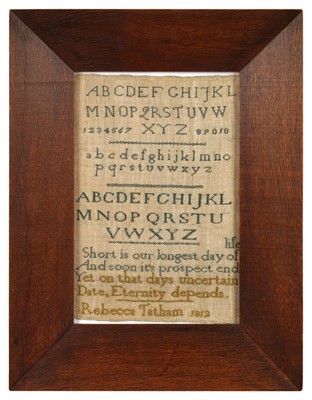 ABCDEFGHIJKL
MNOPQRSTUVW
1234567 XYZ 89010
abcdefghijklmno
pqrstuvwxyz
ABCDEFGHIJKL
MNOPQRSTU
VWXYZ
life
Short is our longest day of
And soon it's prospect end
Yet on that days uncertain
Date, Eternity depends.
Rebecca Tatham 1812